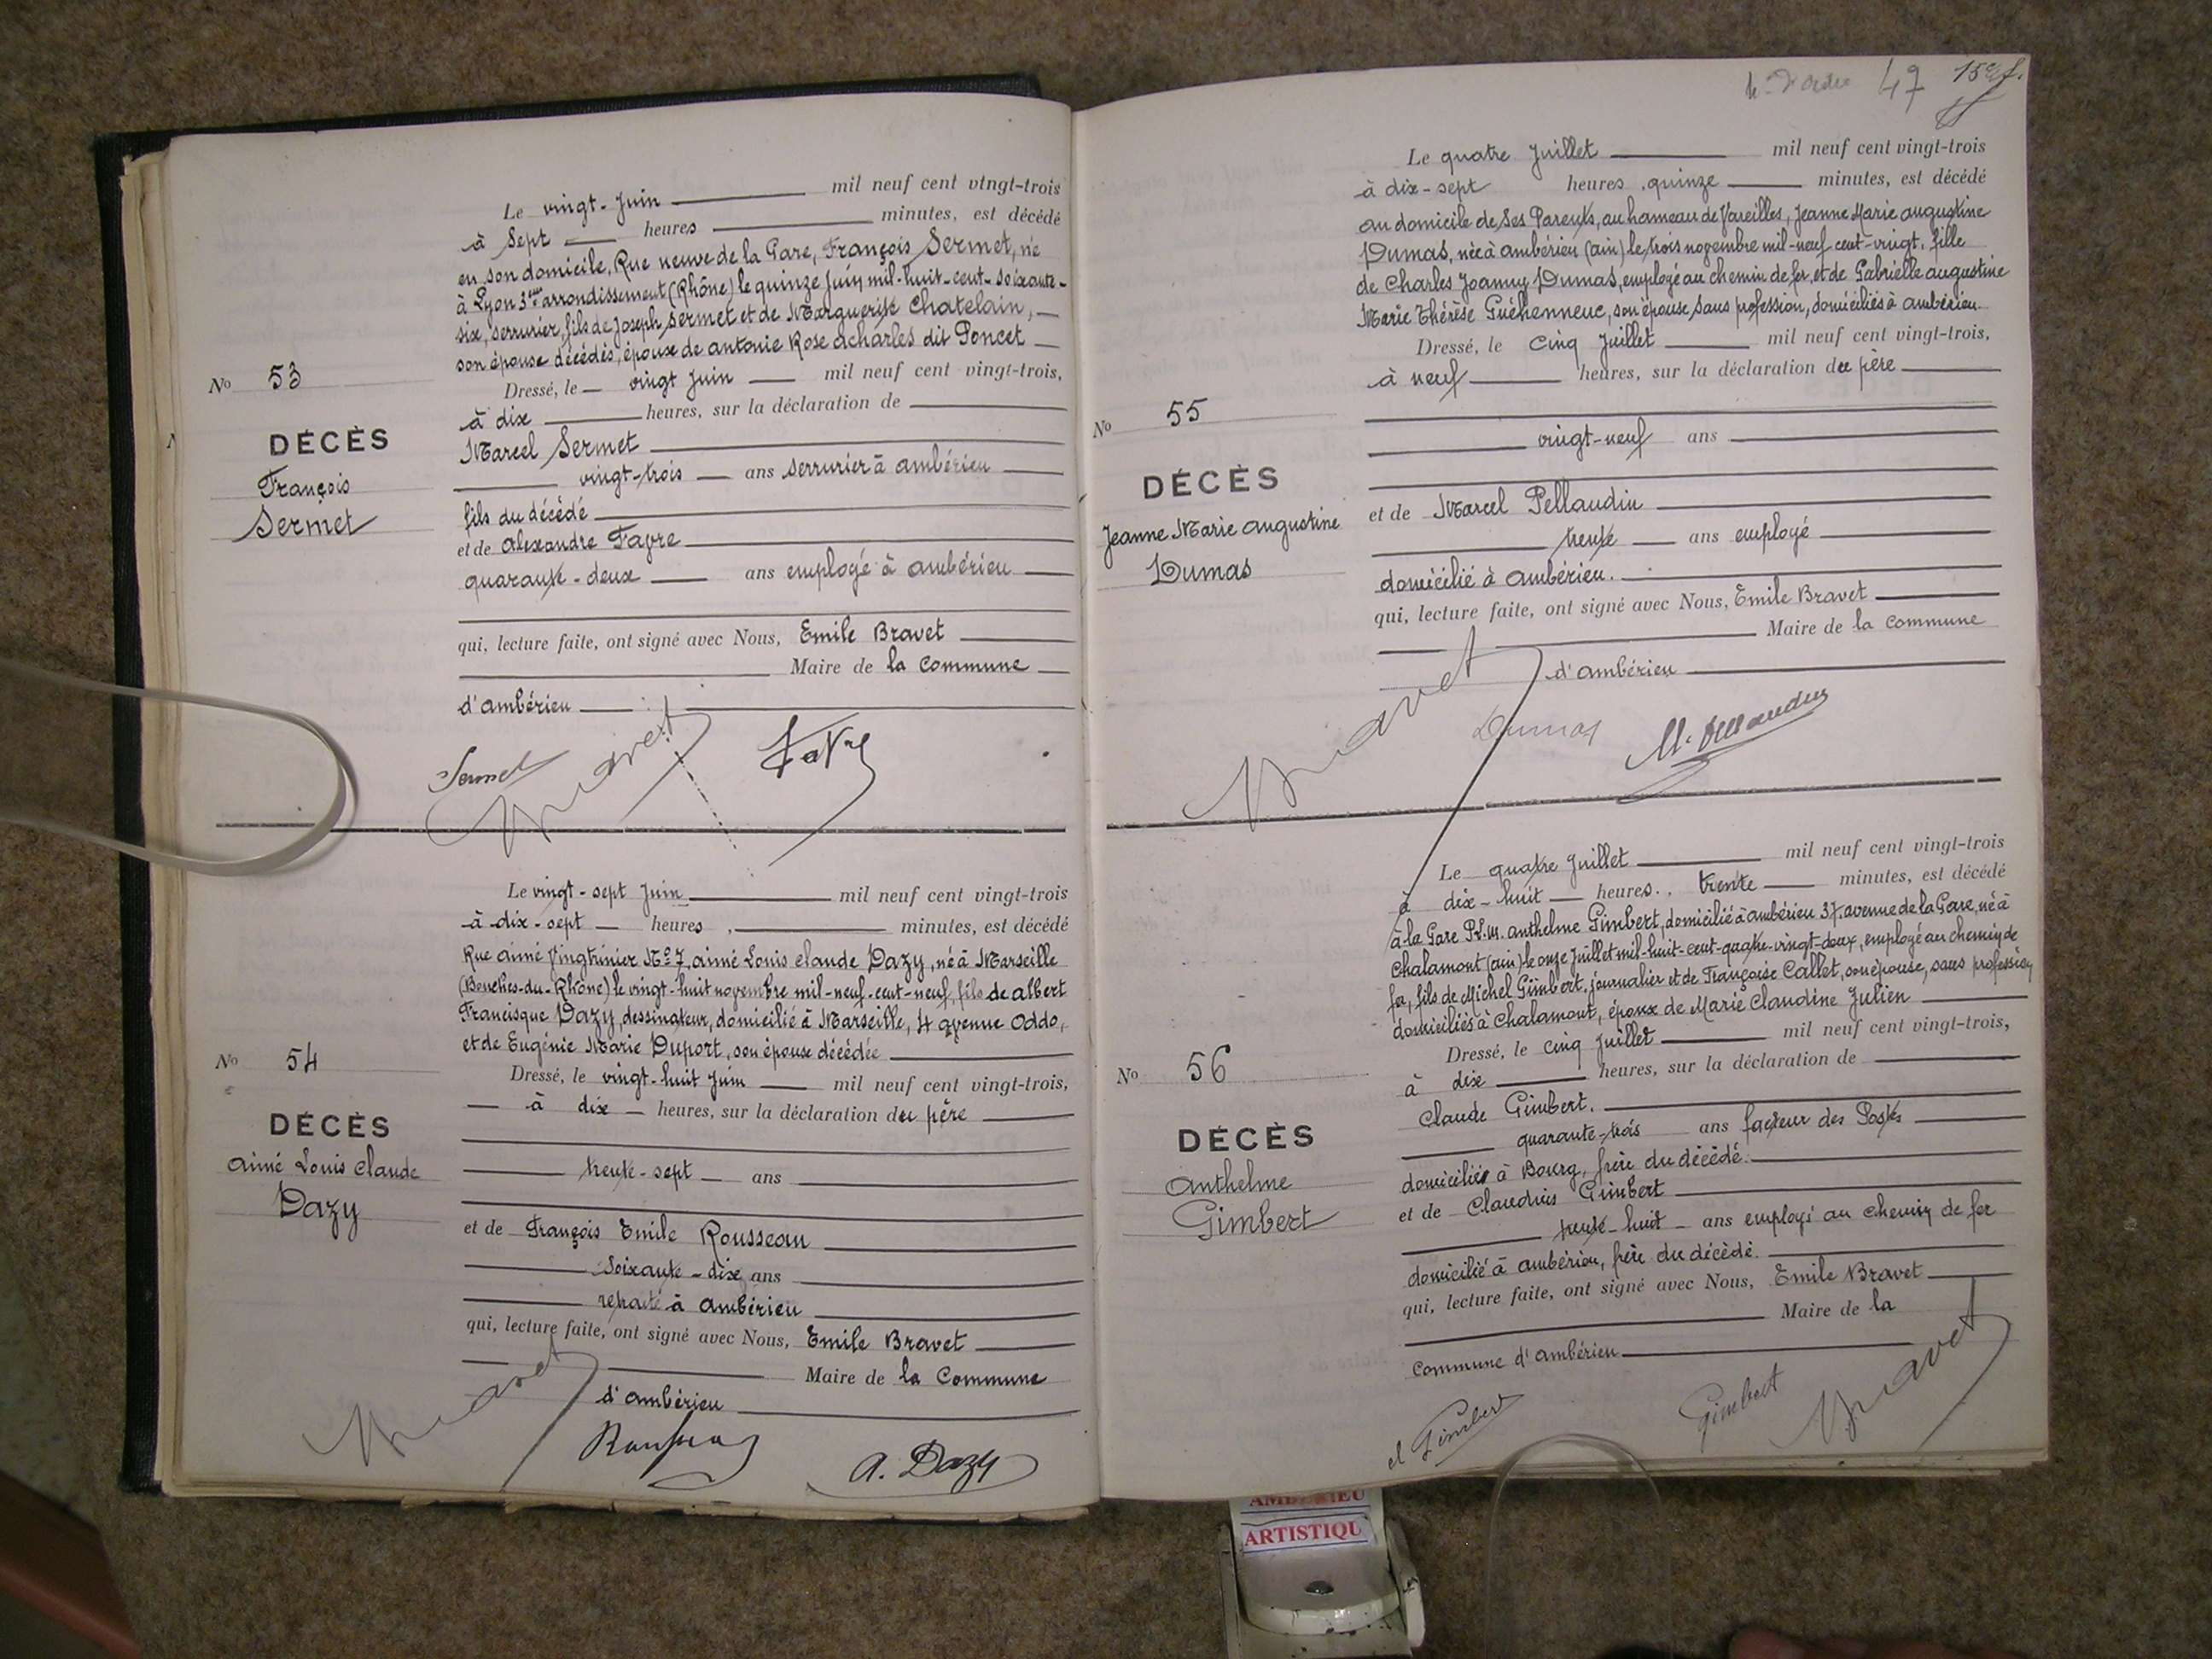 Le vingt-Juin mil neuf cent vingt-trois
à Sept heures minutes, est décédé
en son domicile, Rue neuve de la Gare, François Sermet, né
à Lyon 3ème arrondissement (Rhône) le quinze Juin mil-huit-cent-soixante-
six, serrurier, fils de Joseph Sermet et de Marguerite Chatelain,
son épouse décédés, époux de antonie Rose acharles dit Poncet
No 53
Dressé, le vingt Juin mil neuf cent vingt-trois,
à dix heures, sur la déclaration de
DÉCÈS
Marcel Sermet
François
vingt-trois ans serrurier à ambérieu
Sermet
fils du décédé
et de alexandre Favre
quarante-deux ans employé à ambérieu
qui, lecture faite, ont signé avec Nous, Emile Bravet
Maire de la Commune
d'ambérieu
Sermet Bravet Favre
Le vingt-sept Juin mil neuf cent vingt-trois
à dix-sept heures, minutes, est décédé
Rue aimé Vingtrinier No 7, aimé Louis claude Dazy, né à Marseille
(Bouches-du-Rhône) le vingt-huit novembre mil-neuf-cent-neuf, fils de albert
Francisque Dazy, dessinateur, domicilié à Marseille, 4 avenue Oddo,
et de Eugénie Marie Duport, son épouse décédée
No 54
Dressé, le vingt-huit Juin mil neuf cent vingt-trois,
à dix heures, sur la déclaration du père
DÉCÈS
aimé Louis claude
trente-sept ans
Dazy
et de François Emile Rousseau
Soixante-dix ans
retraité à ambérieu
qui, lecture faite, ont signé avec Nous, Emile Bravet
Maire de la Commune
d'ambérieu
Bravet Rousseau A. Dazy
47 15e f.
Le quatre Juillet mil neuf cent vingt-trois
à dix-sept heures, quinze minutes, est décédé
au domicile de ses Parents, au hameau de Vareilles, Jeanne Marie augustine
Dumas, née à ambérieu (ain) le trois novembre mil-neuf-cent-vingt, fille
de Charles Joanny Dumas, employé au chemin de fer, et de Gabrielle augustine
Marie Thérèse Guéhenneuc, son épouse, sans profession, domiciliés à ambérieu.
Dressé, le Cinq Juillet mil neuf cent vingt-trois,
à neuf heures, sur la déclaration du père
No 55
vingt-neuf ans
DÉCÈS
et de Marcel Pellaudin
Jeanne Marie augustine
trente ans employé
Dumas
domicilié à ambérieu.
qui, lecture faite, ont signé avec Nous, Emile Bravet
Maire de la Commune
d'ambérieu
Bravet Dumas M. Pellaudin
Le quatre Juillet mil neuf cent vingt-trois
à dix-huit heures, trente minutes, est décédé
à la Gare P.L.M. anthelme Gimbert, domicilié à ambérieu 37, avenue de la Gare, né à
Chalamont (ain) le onze Juillet mil-huit-cent-quatre-vingt-deux, employé au chemin de
fer, fils de Michel Gimbert, journalier et de Françoise Callet, son épouse, sans profession
domiciliés à Chalamont, époux de Marie Claudine Julien
No 56
Dressé, le cinq Juillet mil neuf cent vingt-trois,
à dix heures, sur la déclaration de
Claude Gimbert.
DÉCÈS
quarante-trois ans facteur des Postes
anthelme
domicilié à Bourg, frère du décédé.
Gimbert
et de Claudius Gimbert
trente-huit ans employé au chemin de fer
domicilié à ambérieu, frère du décédé.
qui, lecture faite, ont signé avec Nous, Emile Bravet
Maire de la
Commune d'ambérieu
cl Gimbert Gimbert Bravet
AMBERIEU
ARTISTIQU